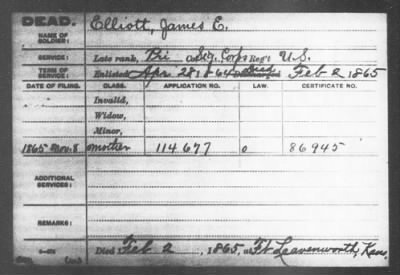 DEAD.
NAME OF SOLDIER: Elliott, James E.
SERVICE: Late rank, Pri Co. Sig. Corps Reg't U.S.
TERM OF SERVICE: Enlisted Apr 28 1864 Died Feb 2, 1865
DATE OF FILING. CLASS. APPLICATION NO. LAW. CERTIFICATE NO.
Invalid,
Widow,
Minor,
1865 Nov. 8 Mother 114677 0 86945
ADDITIONAL SERVICES:
REMARKS:
Died Feb 2, 1865, at Ft Leavenworth, Kan.